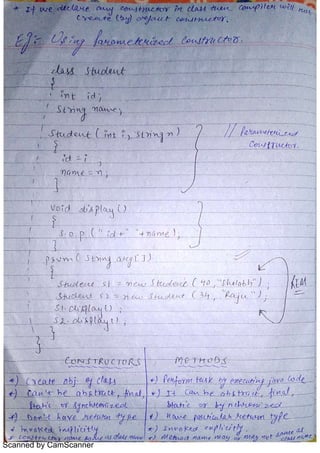 * If we declare any constructor in class then compiler will not
create (by) default constructor.
Eg:- Using parameterized constructor.
class Student
{
int id;
String name;
Student ( int i, String n) // Parameterized
{ Constructor.
id = i ;
name = n ;
}
void display ()
{
S.o.p ( " id + " " + name ) ;
}
psvm ( String arg[])
{
Student s1 = new Student ( 40, "Shelabh") ;
Student s2 = new Student ( 34, "Raju") ;
s1.display() ;
s2.display() ;
}
}
CONSTRUCTORS METHODS
*) Create obj of class *) Perform task by executing java code
*) Can't be abstract, final, *) It Can be abstract, final,
static or synchronized static or synchronized
*) Don't have return type *) Have particular return type
* Invoked implicitly *) Invoked explicitly.
* Constructor name same as class name *) Method name may or may not same as
class name
Scanned by CamScanner